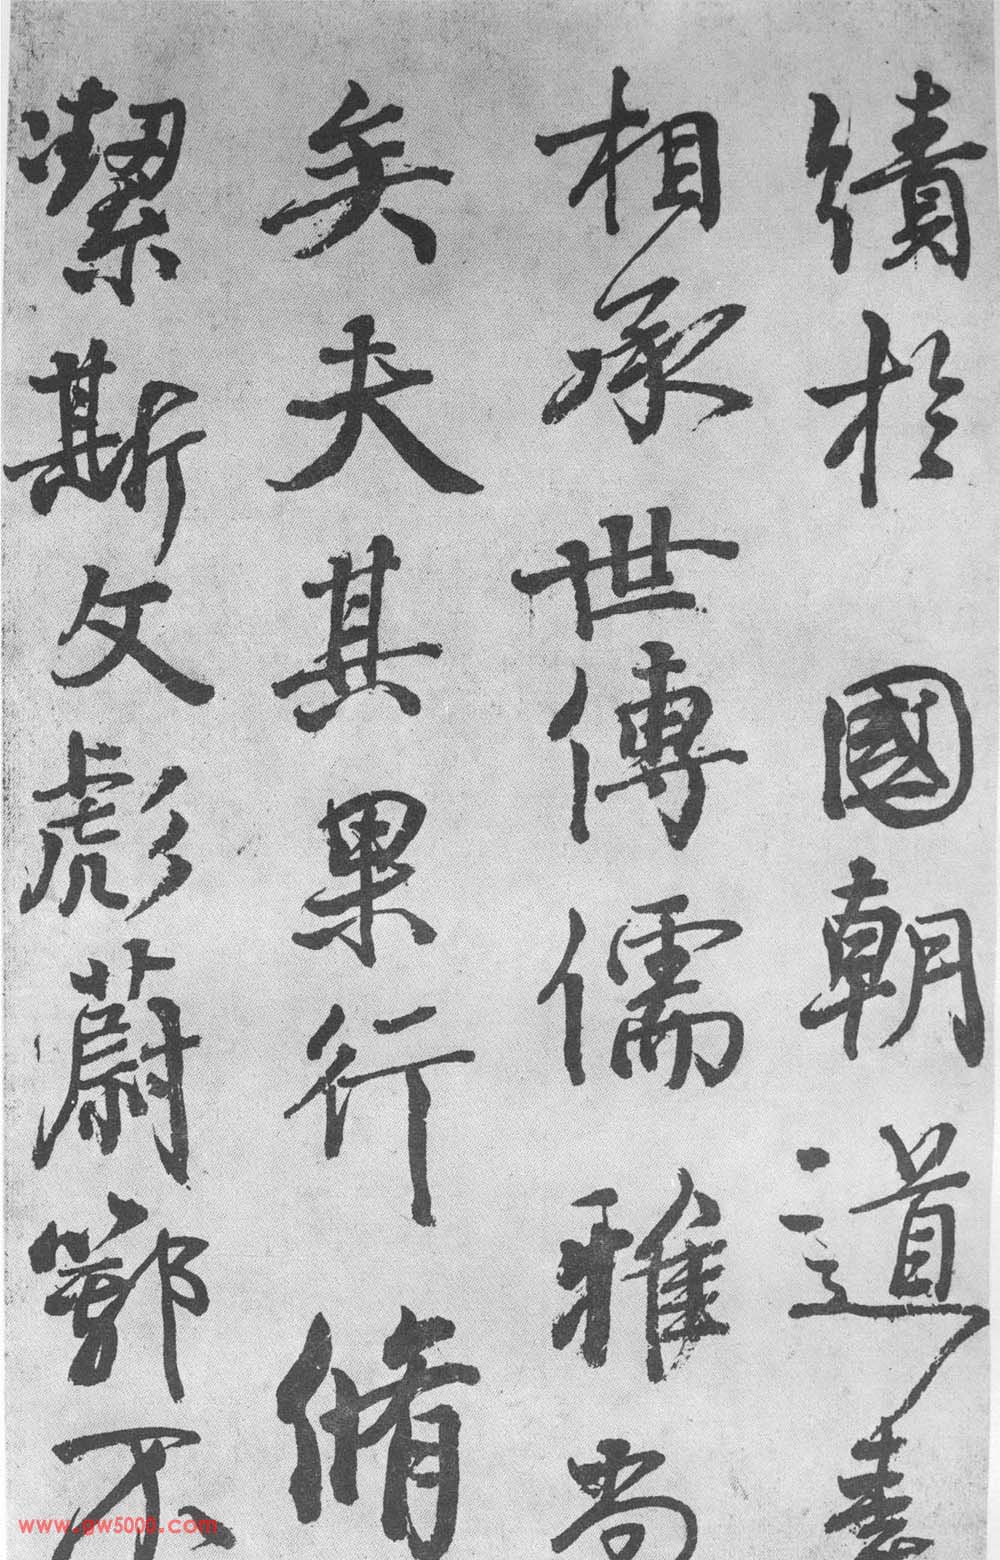 績於國朝道素
相承世傳儒雅尚
矣夫其果行脩
潔斯文彪蔚鄂不
www.gw5000.com